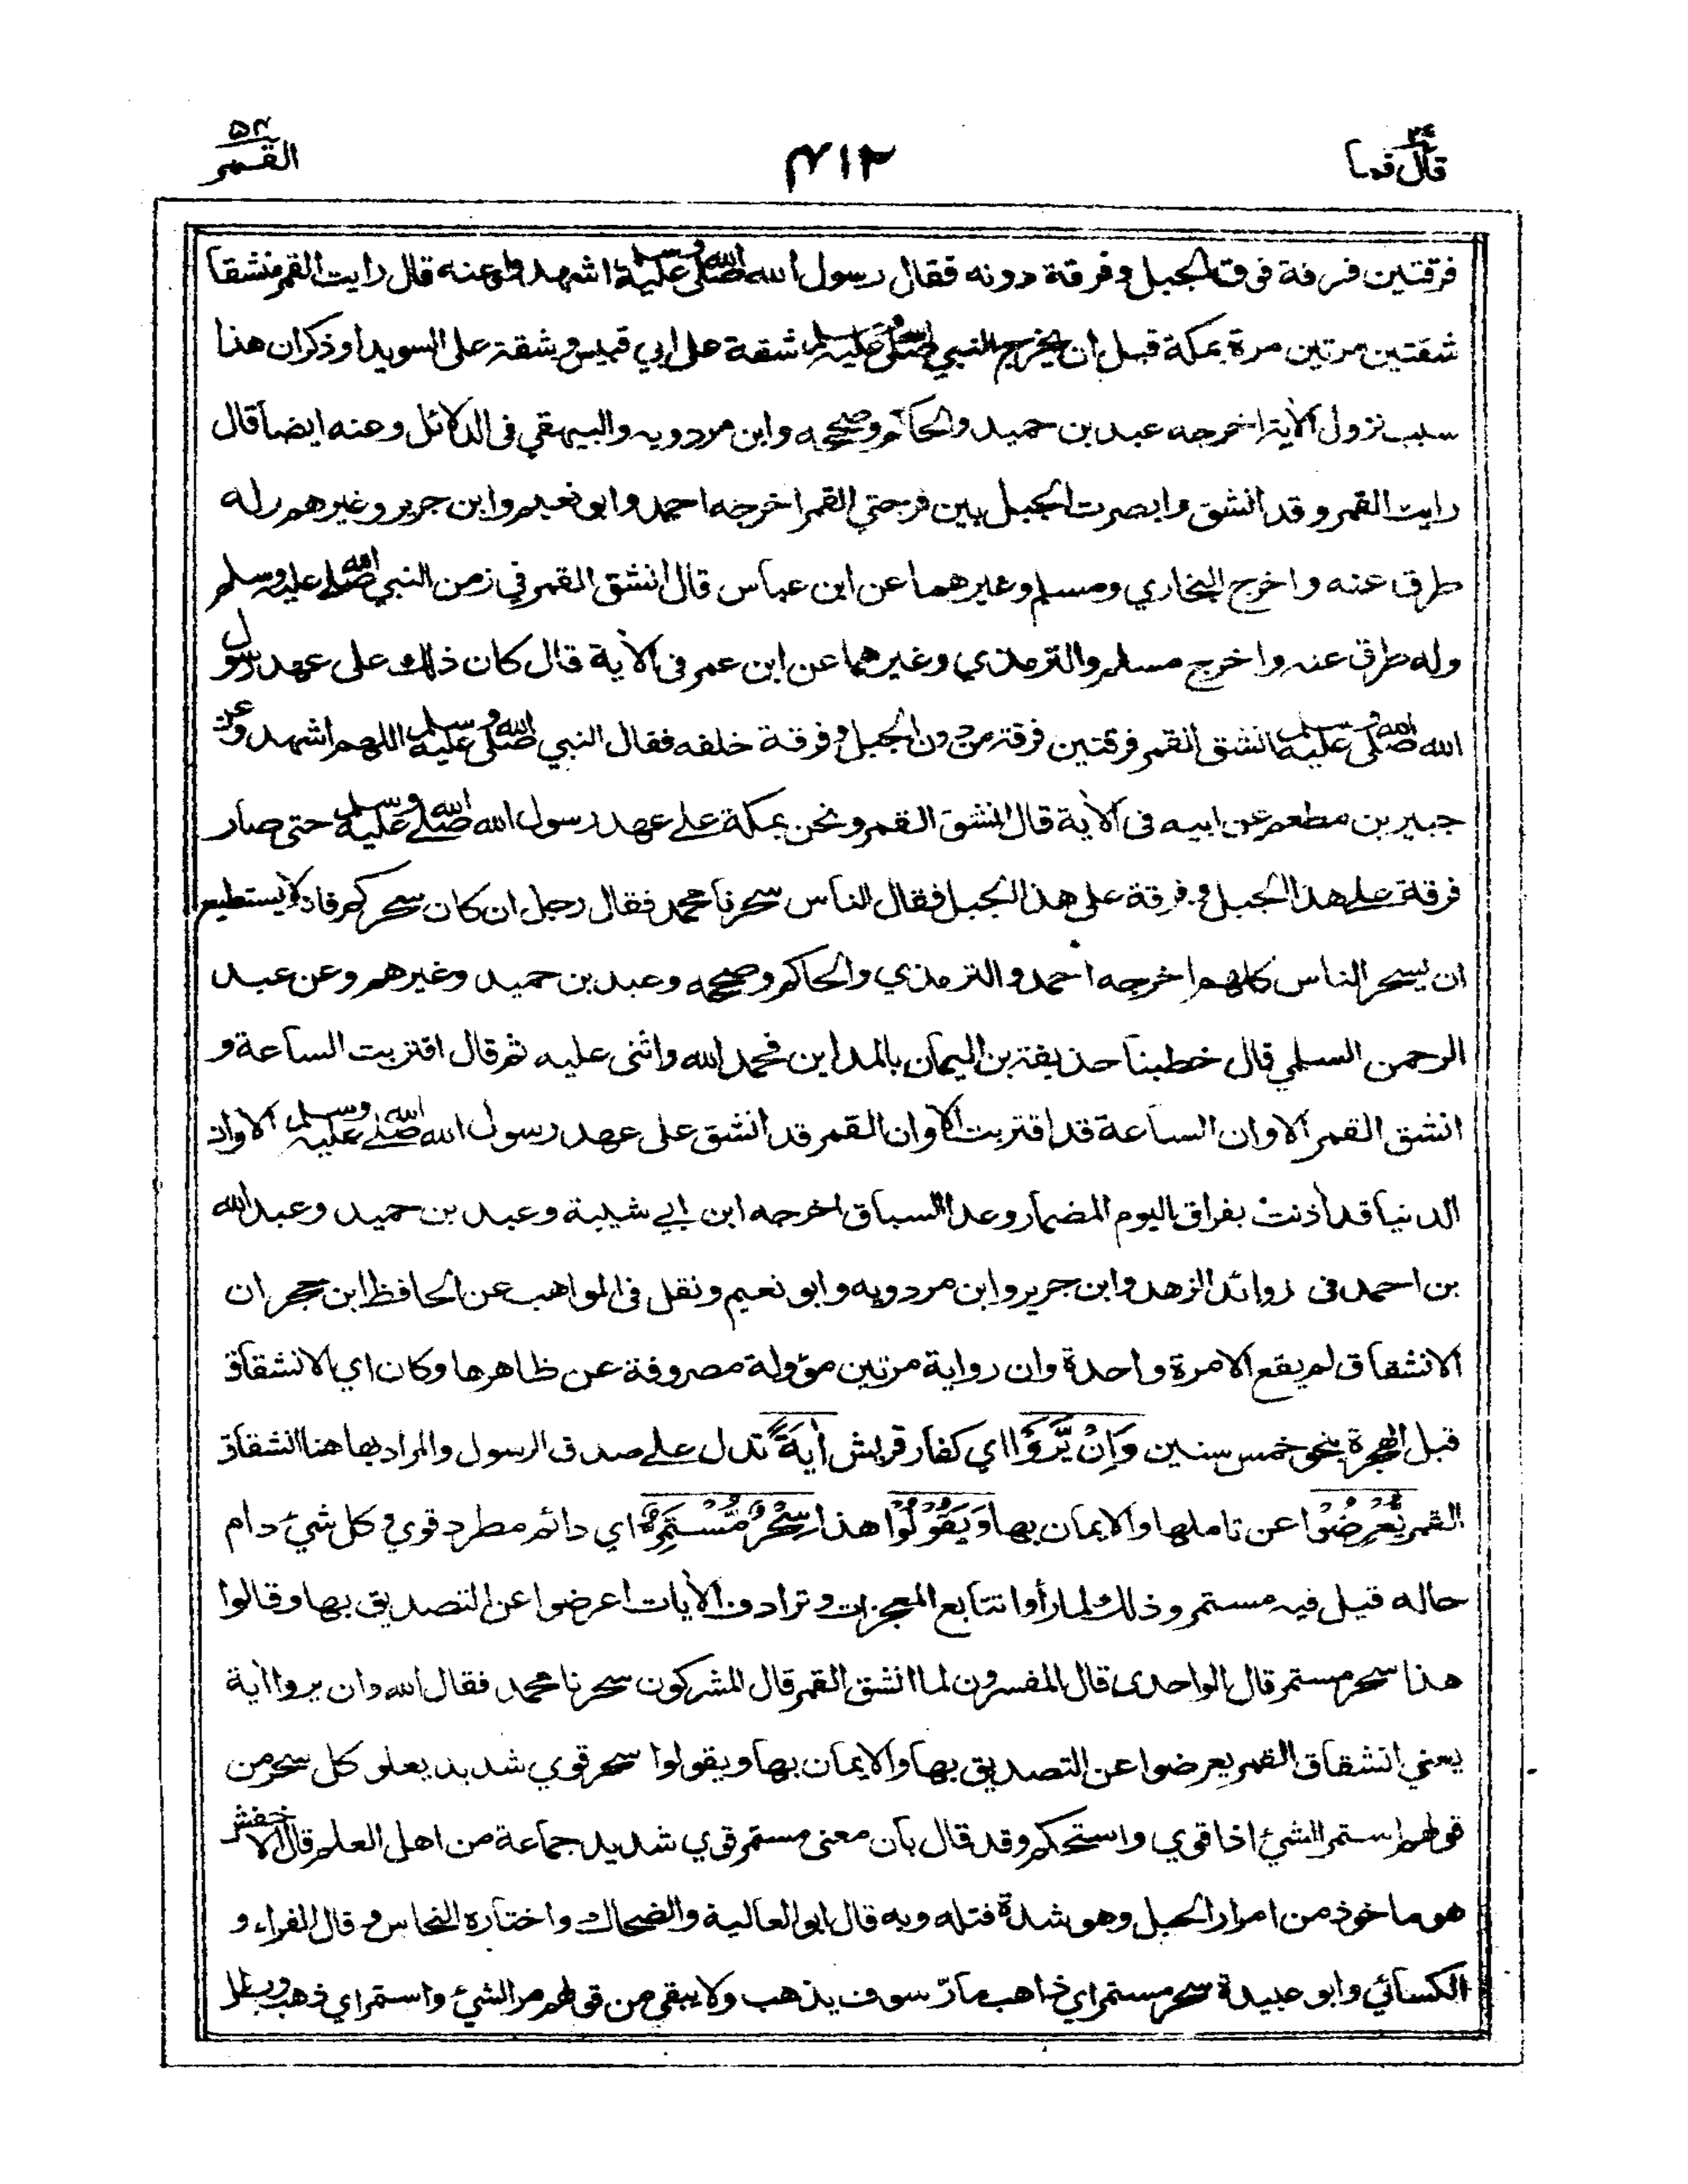 قال فما ٢٧
٤١٢
القمر ٥٤
فرقتين فرقة فوق الجبل وفرقة دونه فقال رسول الله صلى الله عليه وسلم اشهدوا وعنه قال رايت القمر منشقا
شقتين مرتين مرة بمكة قبل ان يخرج النبي صلى الله عليه وسلم شقة على ابي قبيس وشقة على السويدا وذكر ان هذا
سبب نزول الآية اخرجه عبد بن حميد والحاكم وصححه وابن مردويه والبيهقي في الدلائل وعنه ايضا قال
رايت القمر وقد انشق وابصرت الجبل بين فرجتي القمر اخرجه احمد وابو نعيم وابن جرير وغيرهم وله
طرق عنه واخرج البخاري ومسلم وغيرهما عن ابن عباس قال انشق القمر في زمن النبي صلى الله عليه وسلم
وله طرق عنه واخرج مسلم والترمذي وغيرهما عن ابن عمر في الآية قال كان ذلك على عهد رسول
الله صلى الله عليه وسلم انشق القمر فرقتين فرقة من دون الجبل وفرقة خلفه فقال النبي صلى الله عليه وسلم اللهم اشهد وعن
جبير بن مطعم عن ابيه في الآية قال انشق القمر ونحن بمكة على عهد رسول الله صلى الله عليه وسلم حتى صار
فرقة على هذا الجبل وفرقة على هذا الجبل فقال الناس سحرنا محمد فقال رجل ان كان سحركم فانه لا يستطيع
ان يسحر الناس كلهم اخرجه احمد والترمذي والحاكم وصححه وعبد بن حميد وغيرهم وعن عبد
الرحمن السلمي قال خطبنا حذيفة بن اليمان بالمداين فحمد الله واثنى عليه ثم قال اقتربت الساعة و
انشق القمر الا وان الساعة قد اقتربت الا وان القمر قد انشق على عهد رسول الله صلى الله عليه وسلم الا وان
الدنيا قد أذنت بفراق اليوم المضمار وغدا السباق اخرجه ابن ابي شيبة وعبد بن حميد وعبد الله
بن احمد في زوائد الزهد وابن جرير وابن مردويه وابو نعيم ونقل في المواهب عن الحافظ ابن حجر ان
الانشقاق لم يقع الا مرة واحدة وان رواية مرتين مؤولة مصروفة عن ظاهرها وكان اي الانشقاق
قبل الهجرة بنحو خمس سنين وَاِنْ يَّرَوْا اي كفار قريش أيَةً تدل على صدق الرسول والمراد بها هنا انشقاق
القمر يُعْرِضُوْا عن تاملها والايمان بها وَيَقُوْلُوْا هذا سِحْرٌ مُّسْتَمِرٌّ اي دائم مطرد قوي وكل شيء دام
حاله قيل فيه مستمر وذلك لما رأوا تتابع المعجزات وترادف الآيات اعرضوا عن التصديق بها وقالوا
هذا سحر مستمر قال الواحدى قال المفسرون لما انشق القمر قال المشركون سحرنا محمد فقال الله وان يروا أية
يعني انشقاق القمر يعرضوا عن التصديق بها والايمان بها ويقولوا سحر قوي شديد يعلو كل سحر من
قولهم استمر الشيء اذا قوي واستحكم وقد قال بان معنى مستمر قوي شديد جماعة من اهل العلم قال الاخفش
هو ماخوذ من امرار الحبل وهو شدة فتله وبه قال ابو العالية والضحاك واختاره النحاس وقال الفراء و
الكسائي وابو عبيدة سحر مستمر اي ذاهب مارّ سوف يذهب ولا يبقى من قولهم مر الشيء واستمر اي ذهب وبطل